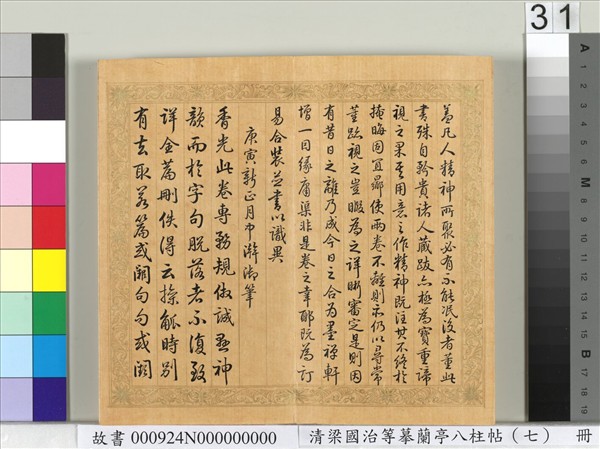 蓋凡人精神所聚必有不能泯沒者董此
書殊自矜貴諸人藏跋亦極為寶重諦
視之果是用意之作精神既注其不終於
掩晦固宜爾使兩卷不離則亦仍以尋常
董跡視之豈暇為之詳晰審定是則因
有昔日之離乃成今日之合為墨禪軒
增一回緣庸渠非是卷之幸耶既為訂
易合裝並書以識異
庚寅新正月中澣御筆
香光此卷專務規倣誠懸神
韻而於字句脫落者不復致
詳全篇刪佚得云操觚時別
有去取若篇或闕句句或闕
31
A
1
2
3
4
5
6
M
8
9
10
11
12
13
14
15
B
17
18
19
故書 000924N000000000
清梁國治等摹蘭亭八柱帖（七） 冊